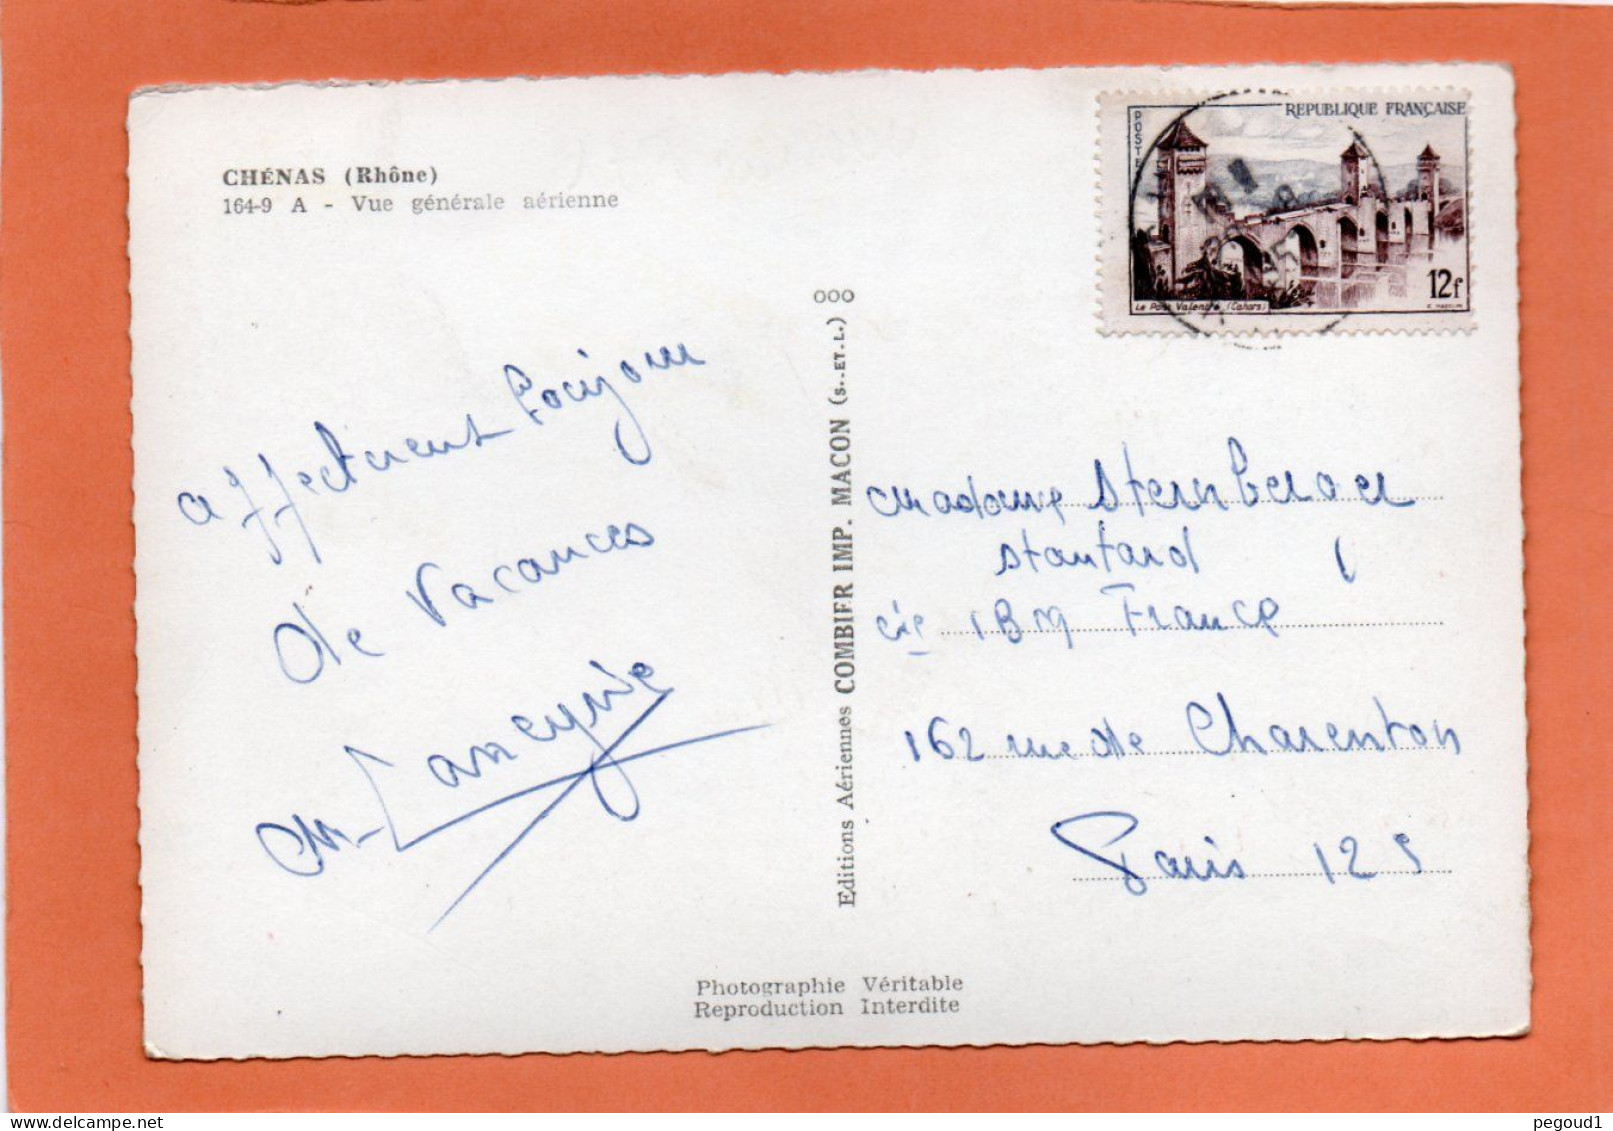 CHÉNAS (Rhône)
164-9 A - Vue générale aérienne
REPUBLIQUE FRANÇAISE
POSTES
12f
Le Pont Valentré (Cahors)
000
Editions Aériennes COMBIER IMP. MACON (S.-ET-L.)
affectueux bonjour
de vacances
Madame Sternberger
Cie IBM France
162 rue de Charenton
Paris 12
Photographie Véritable
Reproduction Interdite
pegoud1